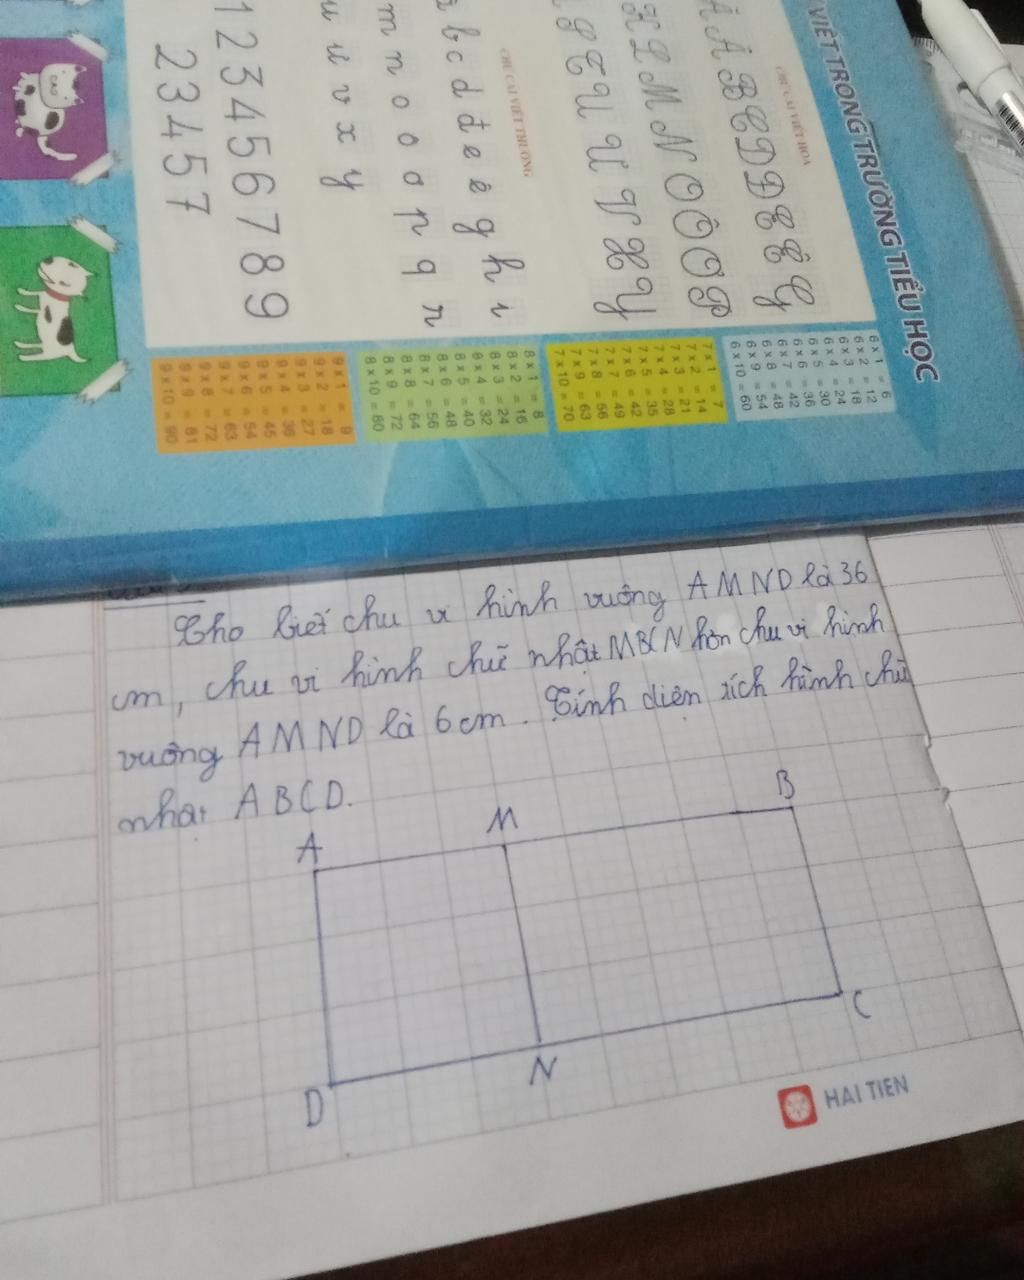 VIẾT TRONG TRƯỜNG TIỂU HỌC
CHỮ CÁI VIẾT HOA
A Ă B C D Đ E Ê G
K L M N O Ô Ơ P
T U Ư V X Y
CHỮ CÁI VIẾT THƯỜNG
b c d đ e ê g h i
m n o ô ơ p q r
u ư v x y
1 2 3 4 5 6 7 8 9
2 3 4 5 7
6 x 1 = 6
6 x 2 = 12
6 x 3 = 18
6 x 4 = 24
6 x 5 = 30
6 x 6 = 36
6 x 7 = 42
6 x 8 = 48
6 x 9 = 54
6 x 10 = 60
7 x 1 = 7
7 x 2 = 14
7 x 3 = 21
7 x 4 = 28
7 x 5 = 35
7 x 6 = 42
7 x 7 = 49
7 x 8 = 56
7 x 9 = 63
7 x 10 = 70
8 x 1 = 8
8 x 2 = 16
8 x 3 = 24
8 x 4 = 32
8 x 5 = 40
8 x 6 = 48
8 x 7 = 56
8 x 8 = 64
8 x 9 = 72
8 x 10 = 80
9 x 1 = 9
9 x 2 = 18
9 x 3 = 27
9 x 4 = 36
9 x 5 = 45
9 x 6 = 54
9 x 7 = 63
9 x 8 = 72
9 x 9 = 81
9 x 10 = 90
Cho biết chu vi hình vuông AMND là 36
cm, chu vi hình chữ nhật MBCN hơn chu vi hình
vuông AMND là 6cm. Tính diện tích hình chữ
nhật ABCD.
A M B
D N C
HAI TIEN